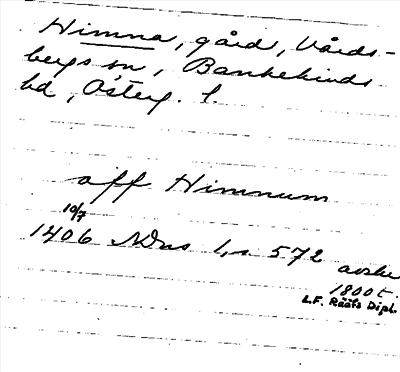 Himna, gård, Vårds-
bergs sn, Bankekinds
hd, Österg. l.
aff Himnum
10/7
1406 NDns 1, s 572 avskr
1800 t.
L.F. Rääfs Dipl.